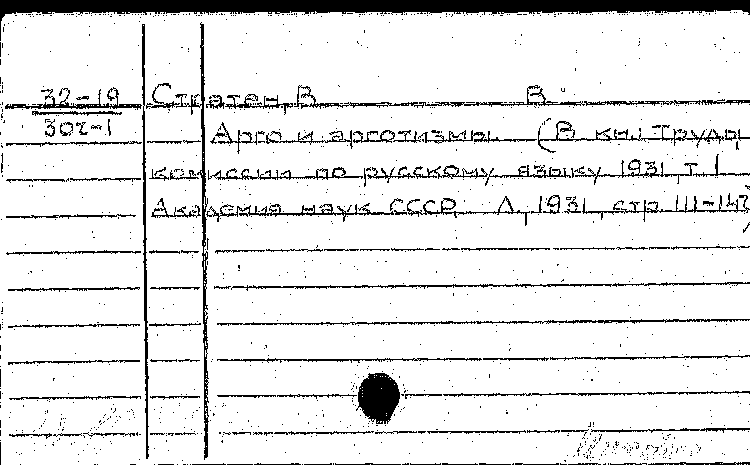 32-19 Стратен, В В.
30г-1 Арго и арготизмы. (В кн.: Труды
комиссии по русскому языку 1931, т. 1
Академия наук СССР. Л., 1931, стр. 111-147)